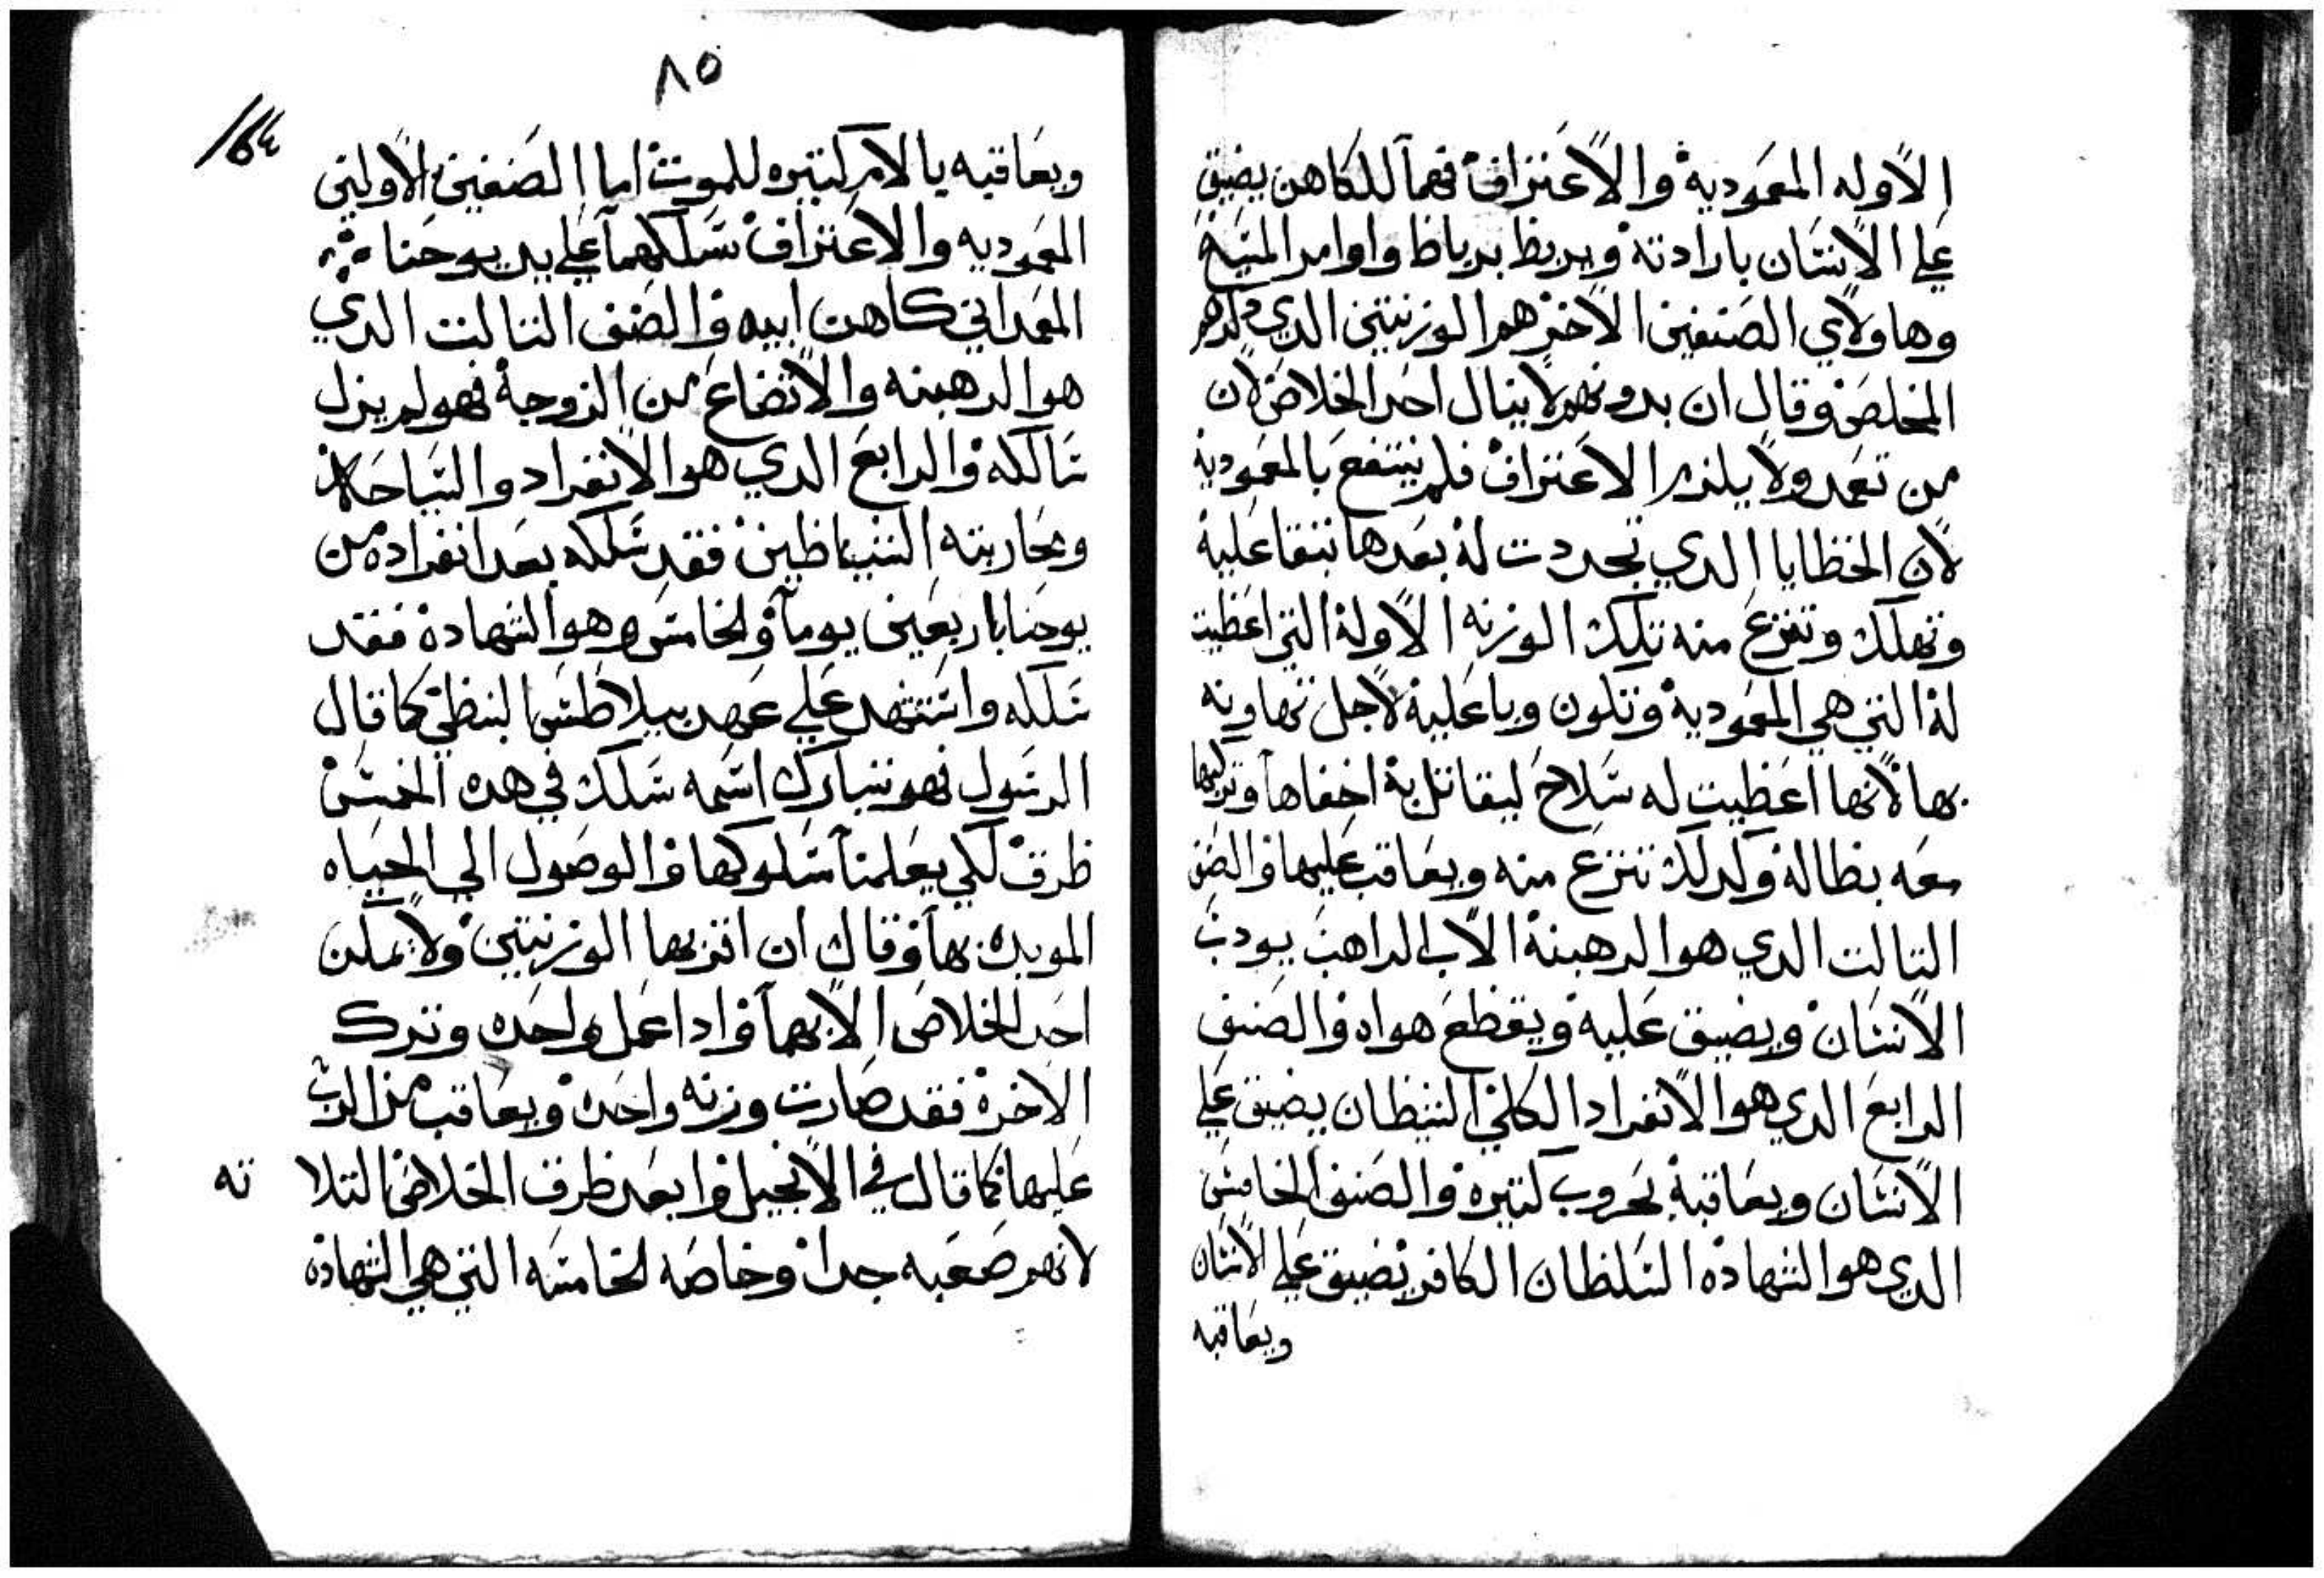 الاوله المعموديه والاعتراف فهما للكاهن يضيق
علي الانسان بارادته ويربط برباط واوامر المسيح
وهاولاي الصنفين الاخر هم الوزنتين الدي دكرهم
المخلص وقال ان بدونهم لا ينال احد الخلاص لان
من تعمد ولا يلزم الاعتراف فلم ينتفع بالمعموديه
لان الخطايا الدي تجددت له بعدها تبقا عليه
وتهلك وتنزع منه تلك الوزنه الاوله التي اعطيت
له التي هي المعموديه وتكون وبا عليه لاجل تهاونه
بها لانها اعطيت له سلاح ليقاتل به اخفاها وتركها
معه بطاله وكدلك تنزع منه ويعاقب عليها والصنف
التالت الدي هو الرهبنه الاب الراهب يودب
الانسان ويضيق عليه ويقطع هواه والصنف
الرابع الدي هو الانفراد الكلي الشيطان يضيق علي
الانسان ويعاقبه بحروب كتيره والصنف الخامس
الدي هو الشهاده السلطان الكافر يضيق علي الانسان
ويعاقبه
٨٥
164
ويعاقبه بالام كتيره للموت اما الصنفين الاولتي
المعموديه والاعتراف سلكهما علي يد يوحنا
المعمداني كاهن ابيه والصنف التالت الدي
هو الرهبنه والاتضاع من الزوجه فهو لم يزل
سالكه والرابع الدي هو الانفراد والسياحه
ومحاربته الشياطين فقد سلكه بعد انفراده من
يوحنا باربعين يوما والخامس وهو الشهاده فقد
سلكه واستشهد علي عهد بيلاطس البنطي كما قال
الرسول فهو تبارك اسمه سلك في هده الخمس
طرق لكي يعلمنا سلوكها والوصول الي الحياه
الموبده بها وقال ان اقربها الوزنتين ولا يمكن
احد الخلاص الا بهما وادا عمل واحده وترك
الاخره فقد صارت وزنه واحده ويعاقب من الرب
عليها كما قال في الانجيل وابعد طرق الخلاص التلا ته
لانهم صعبه جدا وخاصه الخامسه التي هي الشهاده